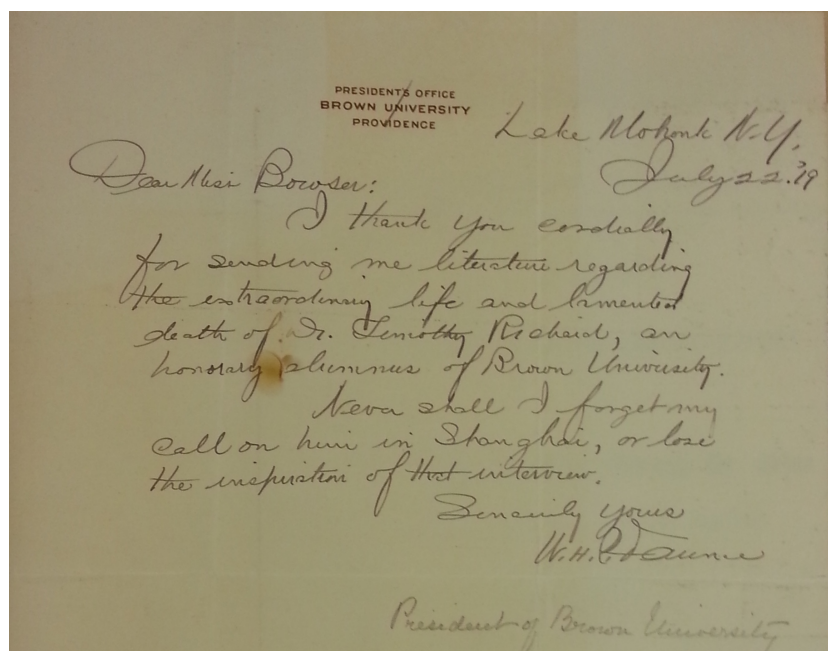 PRESIDENT'S OFFICE
BROWN UNIVERSITY
PROVIDENCE
Lake Mohonk N.Y.
July 22. '19
Dear Miss Bowser:
I thank you cordially
for sending me literature regarding
the extraordinary life and lamented
death of Dr. Timothy Richard, an
honorary alumnus of Brown University.
Never shall I forget my
call on him in Shanghai, or lose
the inspiration of that interview.
Sincerely yours
W.H.P. Faunce
President of Brown University